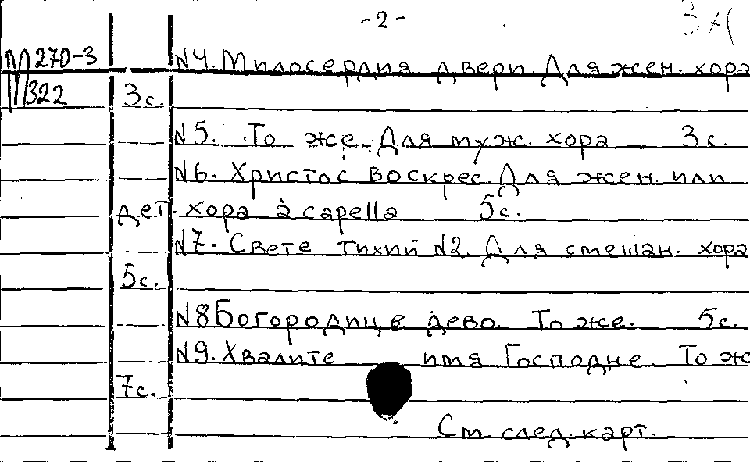 -2-
270-3 N4. Милосердия двери Для жен. хора
322 3с.
N5. То же. Для муж. хора 3с.
N6. Христос воскрес. Для жен. или
дет. хора a capella 5с.
N7. Свете тихий N2. Для смешан. хора
5с.
N8 Богородице дево. То же. 5с.
N9. Хвалите имя Господне. То ж
7с.
См. след. карт.